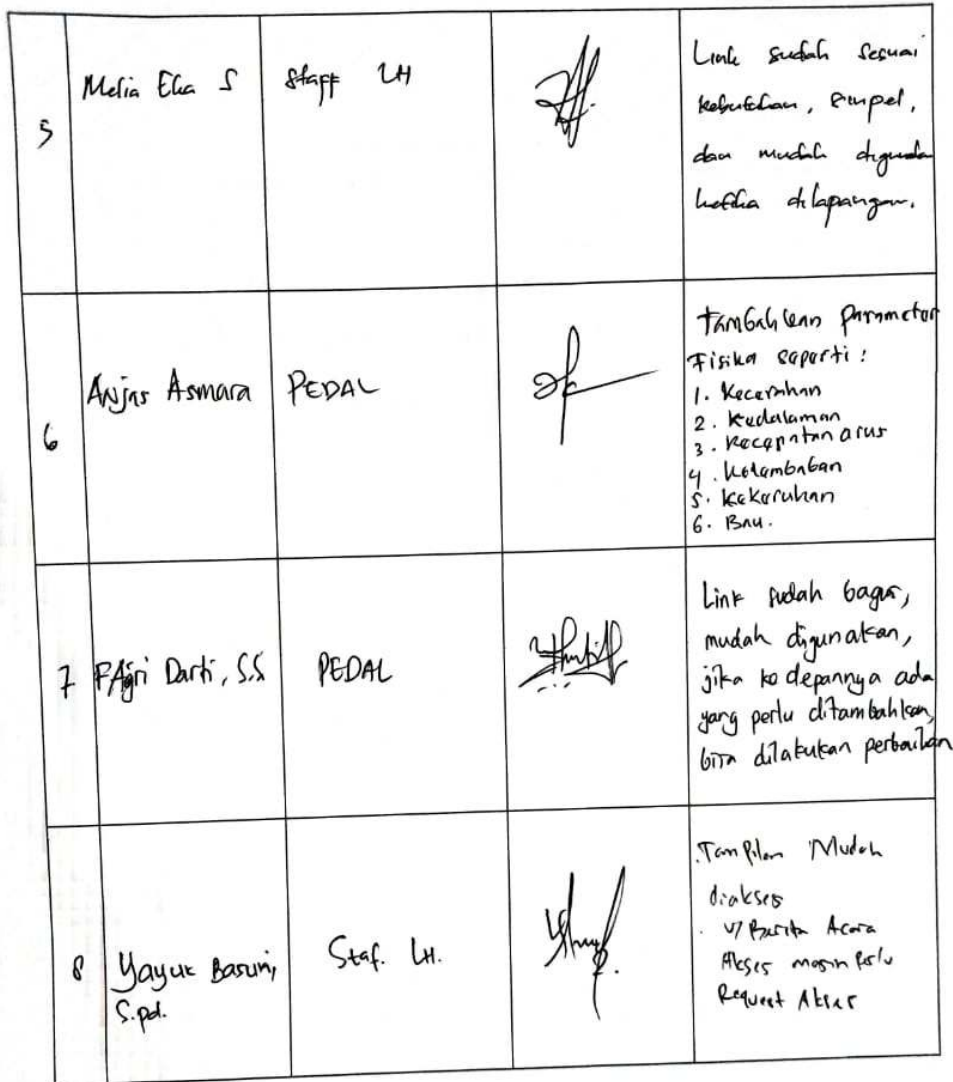 5
Melia Eka S
Staff LH
Link sudah sesuai
kebutuhan, simpel,
dan mudah diguna
ketika dilapangan.
6
Anjas Asmara
PEDAL
Tambahkan Parameter
Fisika seperti :
1. Kecerahan
2. Kedalaman
3. Kecepatan arus
4. Kelembaban
5. Kekeruhan
6. Bau.
7
Darti, S.S
PEDAL
Link sudah bagus,
mudah digunakan,
jika ke depannya ada
yang perlu ditambahkan,
bisa dilakukan perbaikan
8
Yayuk Basuni,
S.pd.
Staf. LH.
Tampilan Mudah
diakses
U/ Berita Acara
Akses masin Perlu
Request Akses